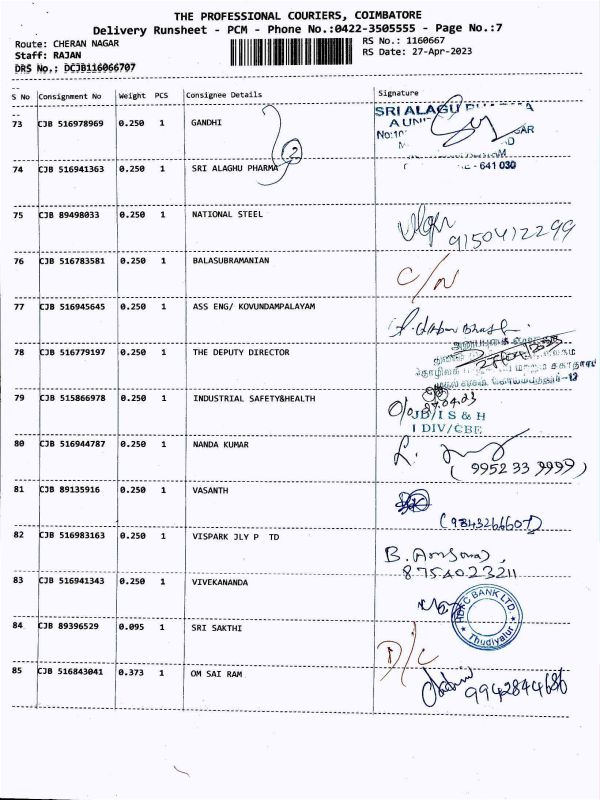 THE PROFESSIONAL COURIERS, COIMBATORE
Delivery Runsheet - PCM - Phone No.:0422-3505555 - Page No.:7
Route: CHERAN NAGAR RS No.: 1160667
Staff: RAJAN RS Date: 27-Apr-2023
DRS No.: DCJB116066707
S No Consignment No Weight PCS Consignee Details Signature
73 CJB 516978969 0.250 1 GANDHI SRI ALAGU
2
74 CJB 516941363 0.250 1 SRI ALAGHU PHARMA - 641 030
75 CJB 89498033 0.250 1 NATIONAL STEEL 9150412299
76 CJB 516783581 0.250 1 BALASUBRAMANIAN C/N
77 CJB 516945645 0.250 1 ASS ENG/ KOVUNDAMPALAYAM
78 CJB 516779197 0.250 1 THE DEPUTY DIRECTOR
79 CJB 515866978 0.250 1 INDUSTRIAL SAFETY&HEALTH 27.04.23
JD/I S & H
I DIV/CBE
80 CJB 516944787 0.250 1 NANDA KUMAR (9952 33 9999)
81 CJB 89135916 0.250 1 VASANTH (9843266607)
82 CJB 516983163 0.250 1 VISPARK JLY P TD B.
8754023211
83 CJB 516941343 0.250 1 VIVEKANANDA BANK LTD. Thudiyalur
84 CJB 89396529 0.095 1 SRI SAKTHI D/C
85 CJB 516843041 0.373 1 OM SAI RAM 9942844686